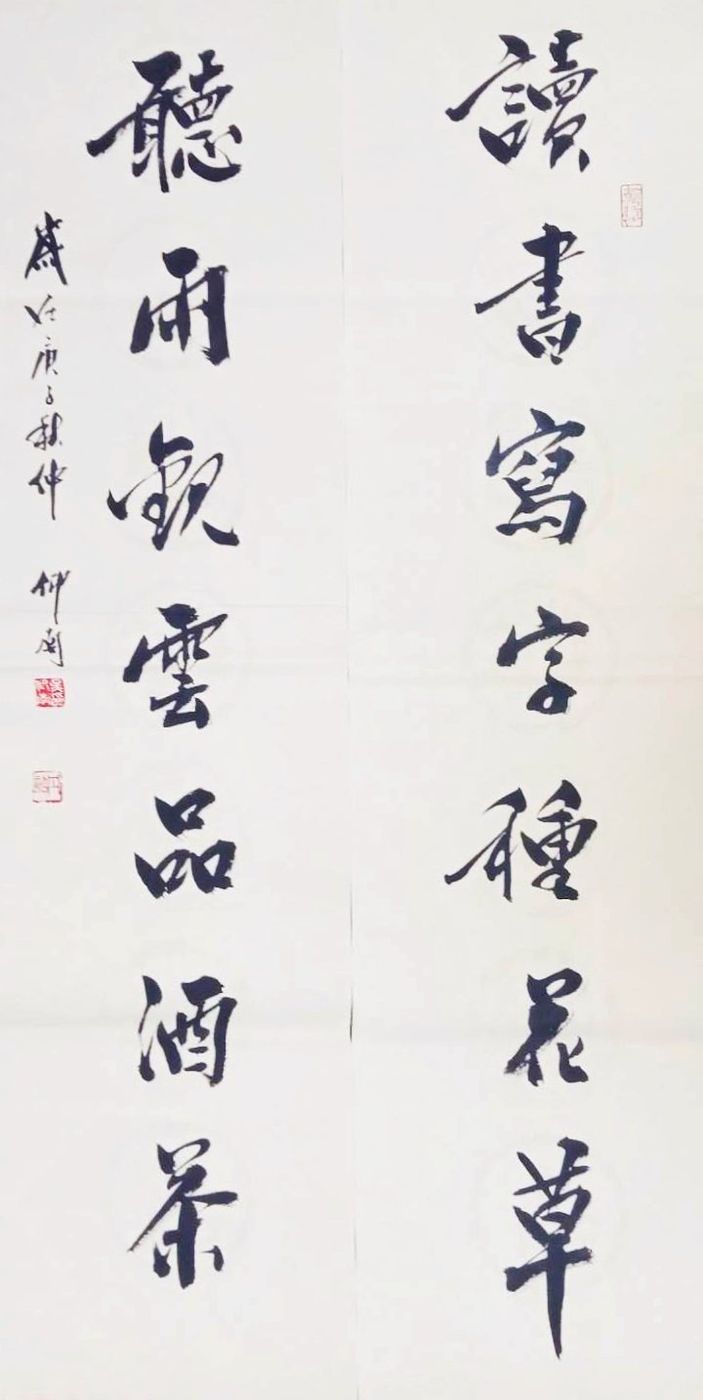 讀書寫字種花草
聽雨觀雲品酒茶
歲在庚子秋仲 仲